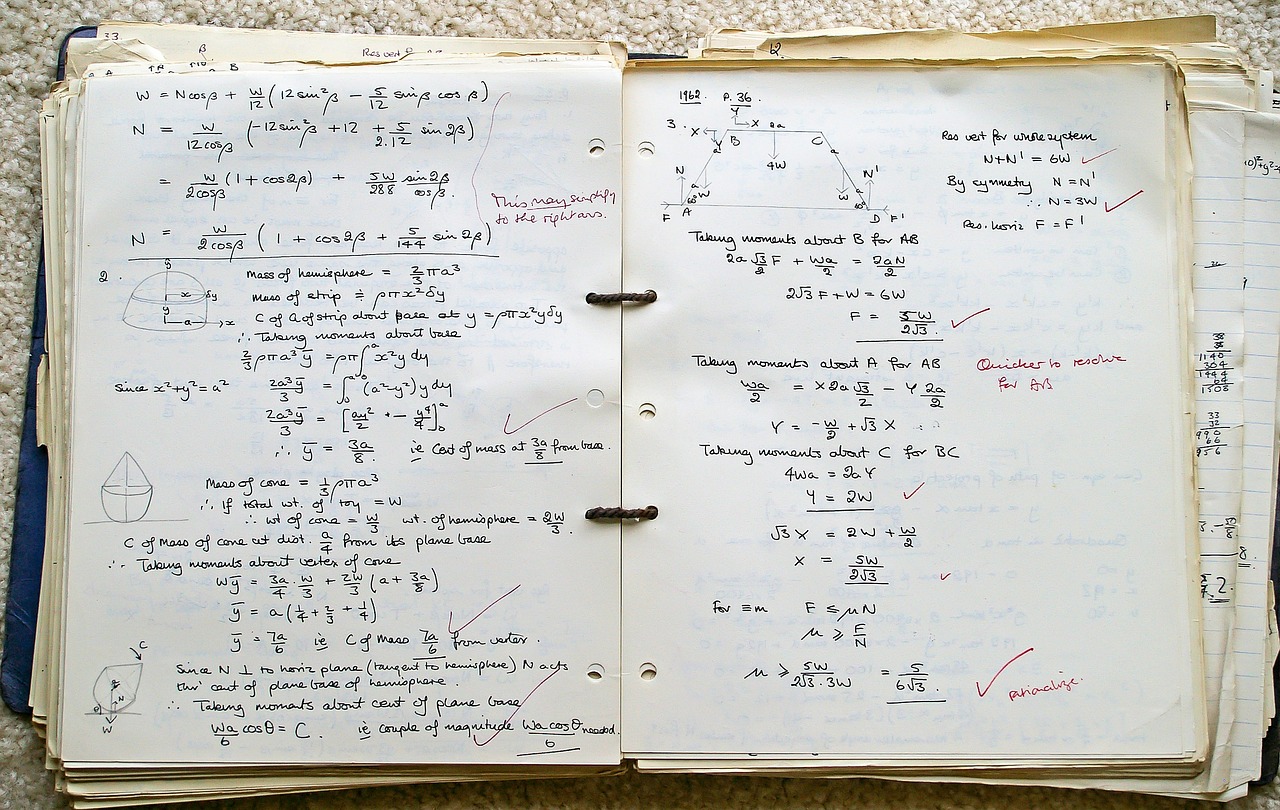 33.
β
Res vert
B
W = Ncosβ + W/12 (12sin²β − 5/12 sinβ cosβ)
N = W/12cosβ (−12sin²β + 12 + 5/2.12 sin2β)
= W/2cosβ (1 + cos2β) + 5W/288 sin2β/cosβ.
This may simplify
to the right ans.
N = W/2cosβ (1 + cos2β + 5/144 sin2β)
2.
y
x
δy
y
a
x
Mass of hemisphere = 2/3 πa³
Mass of strip ≑ ρπx²δy
C of G of strip about base at y = ρπx²yδy
∴ Taking moments about base
2/3 ρπa³ȳ = ρπ∫₀ᵃ x²y dy
Since x²+y²=a² 2a³ȳ/3 = ∫₀ᵃ (a²−y²)y dy
2a³ȳ/3 = [ay²/2 − y⁴/4]₀ᵃ
∴ ȳ = 3a/8 ie Cent of mass at 3a/8 from base.
Mass of cone = 1/3 ρπa³
∴ If total wt. of toy = W
∴ wt of cone = W/3 wt. of hemisphere = 2W/3.
C of Mass of cone at dist. a/4 from its plane base
∴ Taking moments about vertex of cone
Wȳ = 3a/4 . W/3 + 2W/3 (a + 3a/8)
ȳ = a(1/4 + 2/3 + 1/4)
ȳ = 7a/6 ie C of Mass 7a/6 from vertex.
C
N
θ
W
Since N ⊥ to horiz plane (tangent to hemisphere) N acts
thro' cent of plane base of hemisphere.
∴ Taking moments about cent of plane base
Wa/6 cosθ = C. ie couple of magnitude Wa cosθ/6 needed.
12.
1962. P. 36.
3.
Y
X
X
2a
B
C
Y
a
a
4W
N
N'
a
a
W
W
60°
60°
F
A
D
F'
Res vert for whole system
N+N' = 6W
By symmetry N = N'
∴ N = 3W
Res. horiz F = F'
Taking moments about B for AB
2a √3/2 F + Wa/2 = 2aN/2
2√3 F + W = 6W
F = 5W/2√3.
Taking moments about A for AB
Quicker to resolve
for AB
Wa/2 = X 2a √3/2 − Y 2a/2
Y = −W/2 + √3 X
Taking moments about C for BC
4Wa = 2aY
Y = 2W
√3 X = 2W + W/2
X = 5W/2√3
For ≡m F ≤ μN
μ ≥ F/N
μ ≥ 5W/2√3.3W = 5/6√3.
rationalize.
38
38
1140
304
1444
64
1508
33
32
990
66
956